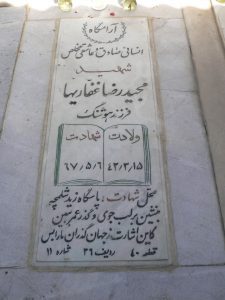 آرامگاه
انسانی صادق عاشقی مخلص
شهید
مجیدرضا غفاریها
فرزند هوشنگ
ولادت شهادت
۴۲/۳/۱۵ ۶۷/۵/۶
محل شهادت: پاسگاه زید شلمچه
بنشین بر لب جوی و گذر عمر ببین
کاین اشارت ز جهان گذران ما را بس
قطعه ۴۰ ردیف ۳۶ شماره ۱۱